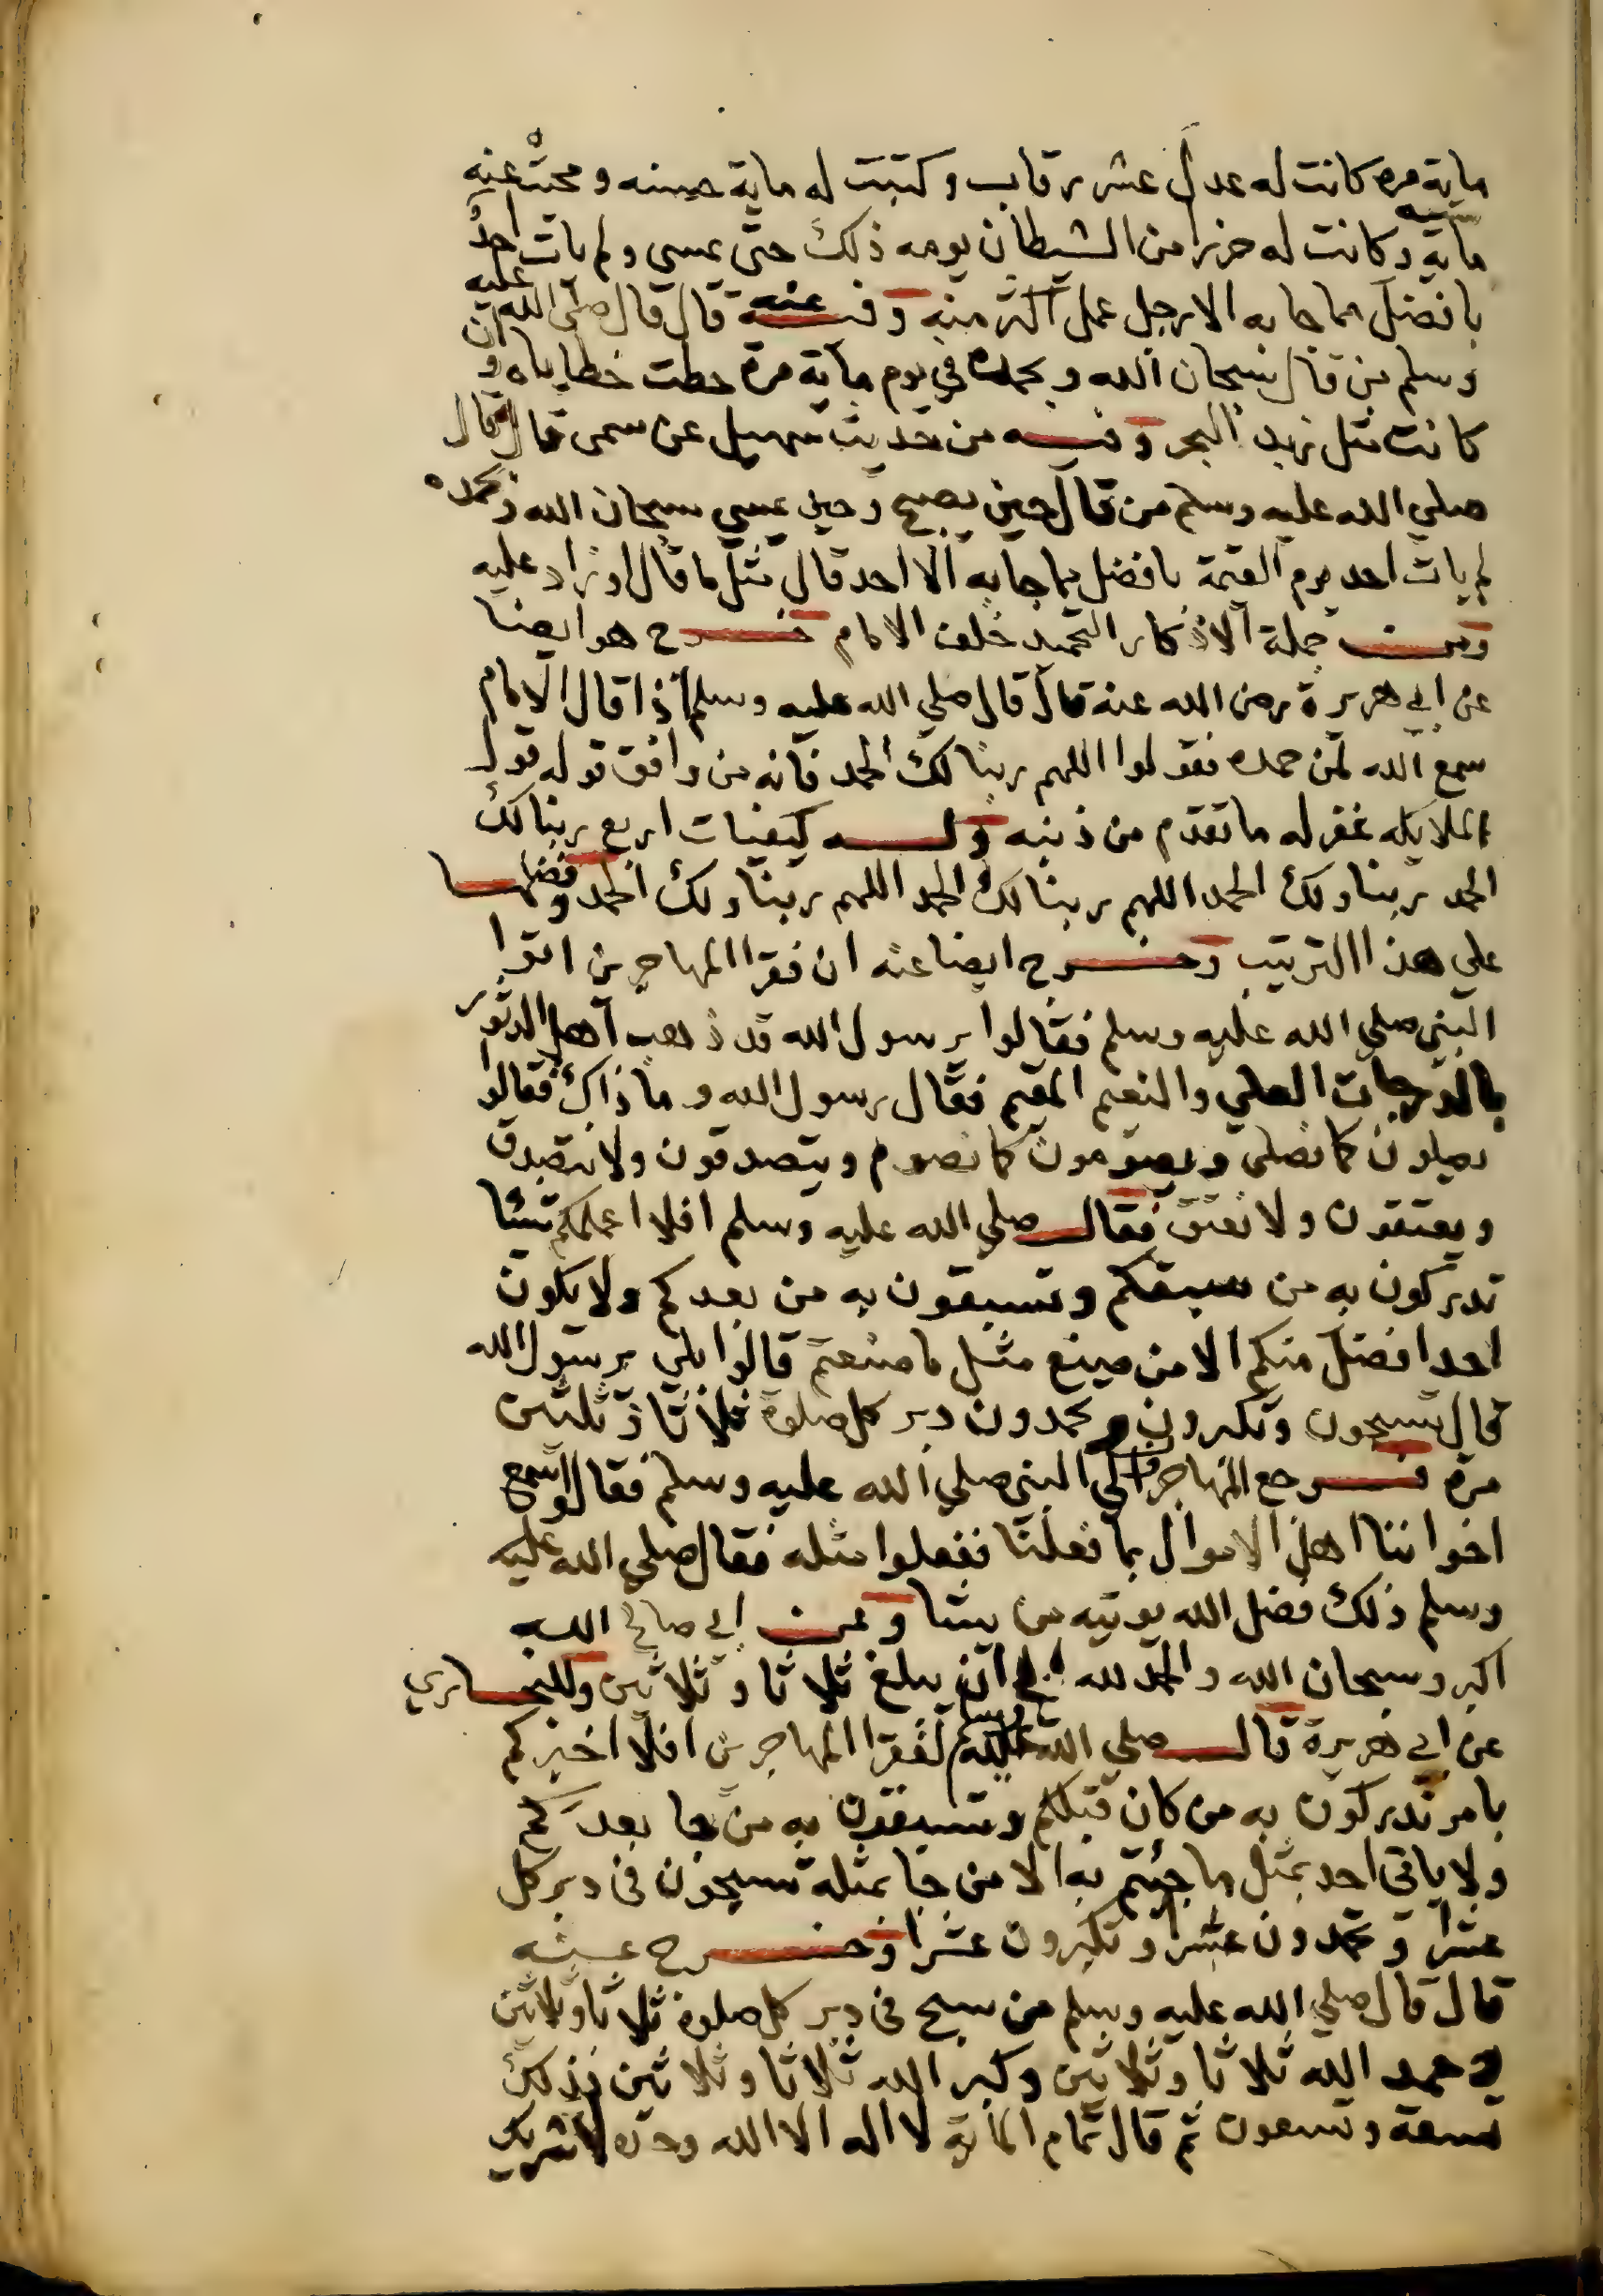 ماية مره كانت له عدل عشر رقاب وكتبت له ماية حسنه ومحت عنه
ماية سيئه وكانت له حرزا من الشيطان يومه ذلك حتى يمسي ولم يات احد
بافضل مما جا به الا رجل عمل اكثر منه وفيه عنه قال قال صلى الله عليه
وسلم من قال سبحان الله وبحمده في يوم ماية مرة حطت خطاياه وان
كانت مثل زبد البحر وفيه من حديث سهيل عن سمى قال قال
صلي الله عليه وسلم من قال حين يصبح وحين يمسي سبحان الله وبحمده
لم يات احد يوم القيمة بافضل مما جا به الا احد قال مثل ما قال او زاد عليه
ومن جملة الاذكار التحميد خلف الامام خرج هو ايضا
عن ابي هريرة رضى الله عنه قال قال صلي الله عليه وسلم اذا قال الامام
سمع الله لمن حمده فقولوا اللهم ربنا لك الحمد فانه من وافق قوله قول
الملايكه غفر له ما تقدم من ذنبه وله كيفيات اربع ربنا لك
الحمد ربنا ولك الحمد اللهم ربنا لك الحمد اللهم ربنا ولك الحمد وفضلها
علي هذا الترتيب وخرج ايضا عنه ان فقرا المهاجرين اتوا
النبي صلي الله عليه وسلم فقالوا يرسول الله قد ذهب اهل الدثور
بالدرجات العلي والنعيم المقيم فقال رسول الله وما ذاك فقالوا
يصلون كما نصلى ويصومون كما نصوم ويتصدقون ولا نتصدق
ويعتقون ولا نعتق فقال صلي الله عليه وسلم افلا اعلمكم شيئا
تدركون به من سبقكم وتسبقون به من بعدكم ولا يكون
احد افضل منكم الا من صنع مثل ما صنعتم قالوا بلي يرسول الله
قال تسبحون وتكبرون وتحمدون دبر كل صلوة ثلاثا وثلثين
مرة فرجع المهاجرون الي النبي صلي الله عليه وسلم فقالوا سمع
اخواننا اهل الاموال بما فعلنا ففعلوا مثله فقال صلي الله عليه
وسلم ذلك فضل الله يوتيه من يشا وعن ابي صالح الله
اكبر وسبحان الله والحمد لله الي ان يبلغ ثلاثا وثلاثين وللبخاري
عن ابي هريرة قال صلي الله عليه وسلم لفقرا المهاجرين افلا اخبركم
بامر تدركون به من كان قبلكم وتسبقون به من جا بعدكم
ولا ياتي احد بمثل ما جئتم به الا من جا بمثله تسبحون في دبر كل
عشرا وتحمدون عشرا وتكبرون عشرا وخرج عنه
قال قال صلي الله عليه وسلم من سبح في دبر كل صلوة ثلاثا وثلاثين
وحمد الله ثلاثا وثلاثين وكبر الله ثلاثا وثلاثين فذلك
تسعة وتسعون ثم قال تمام الماية لا اله الا الله وحده لا شريك